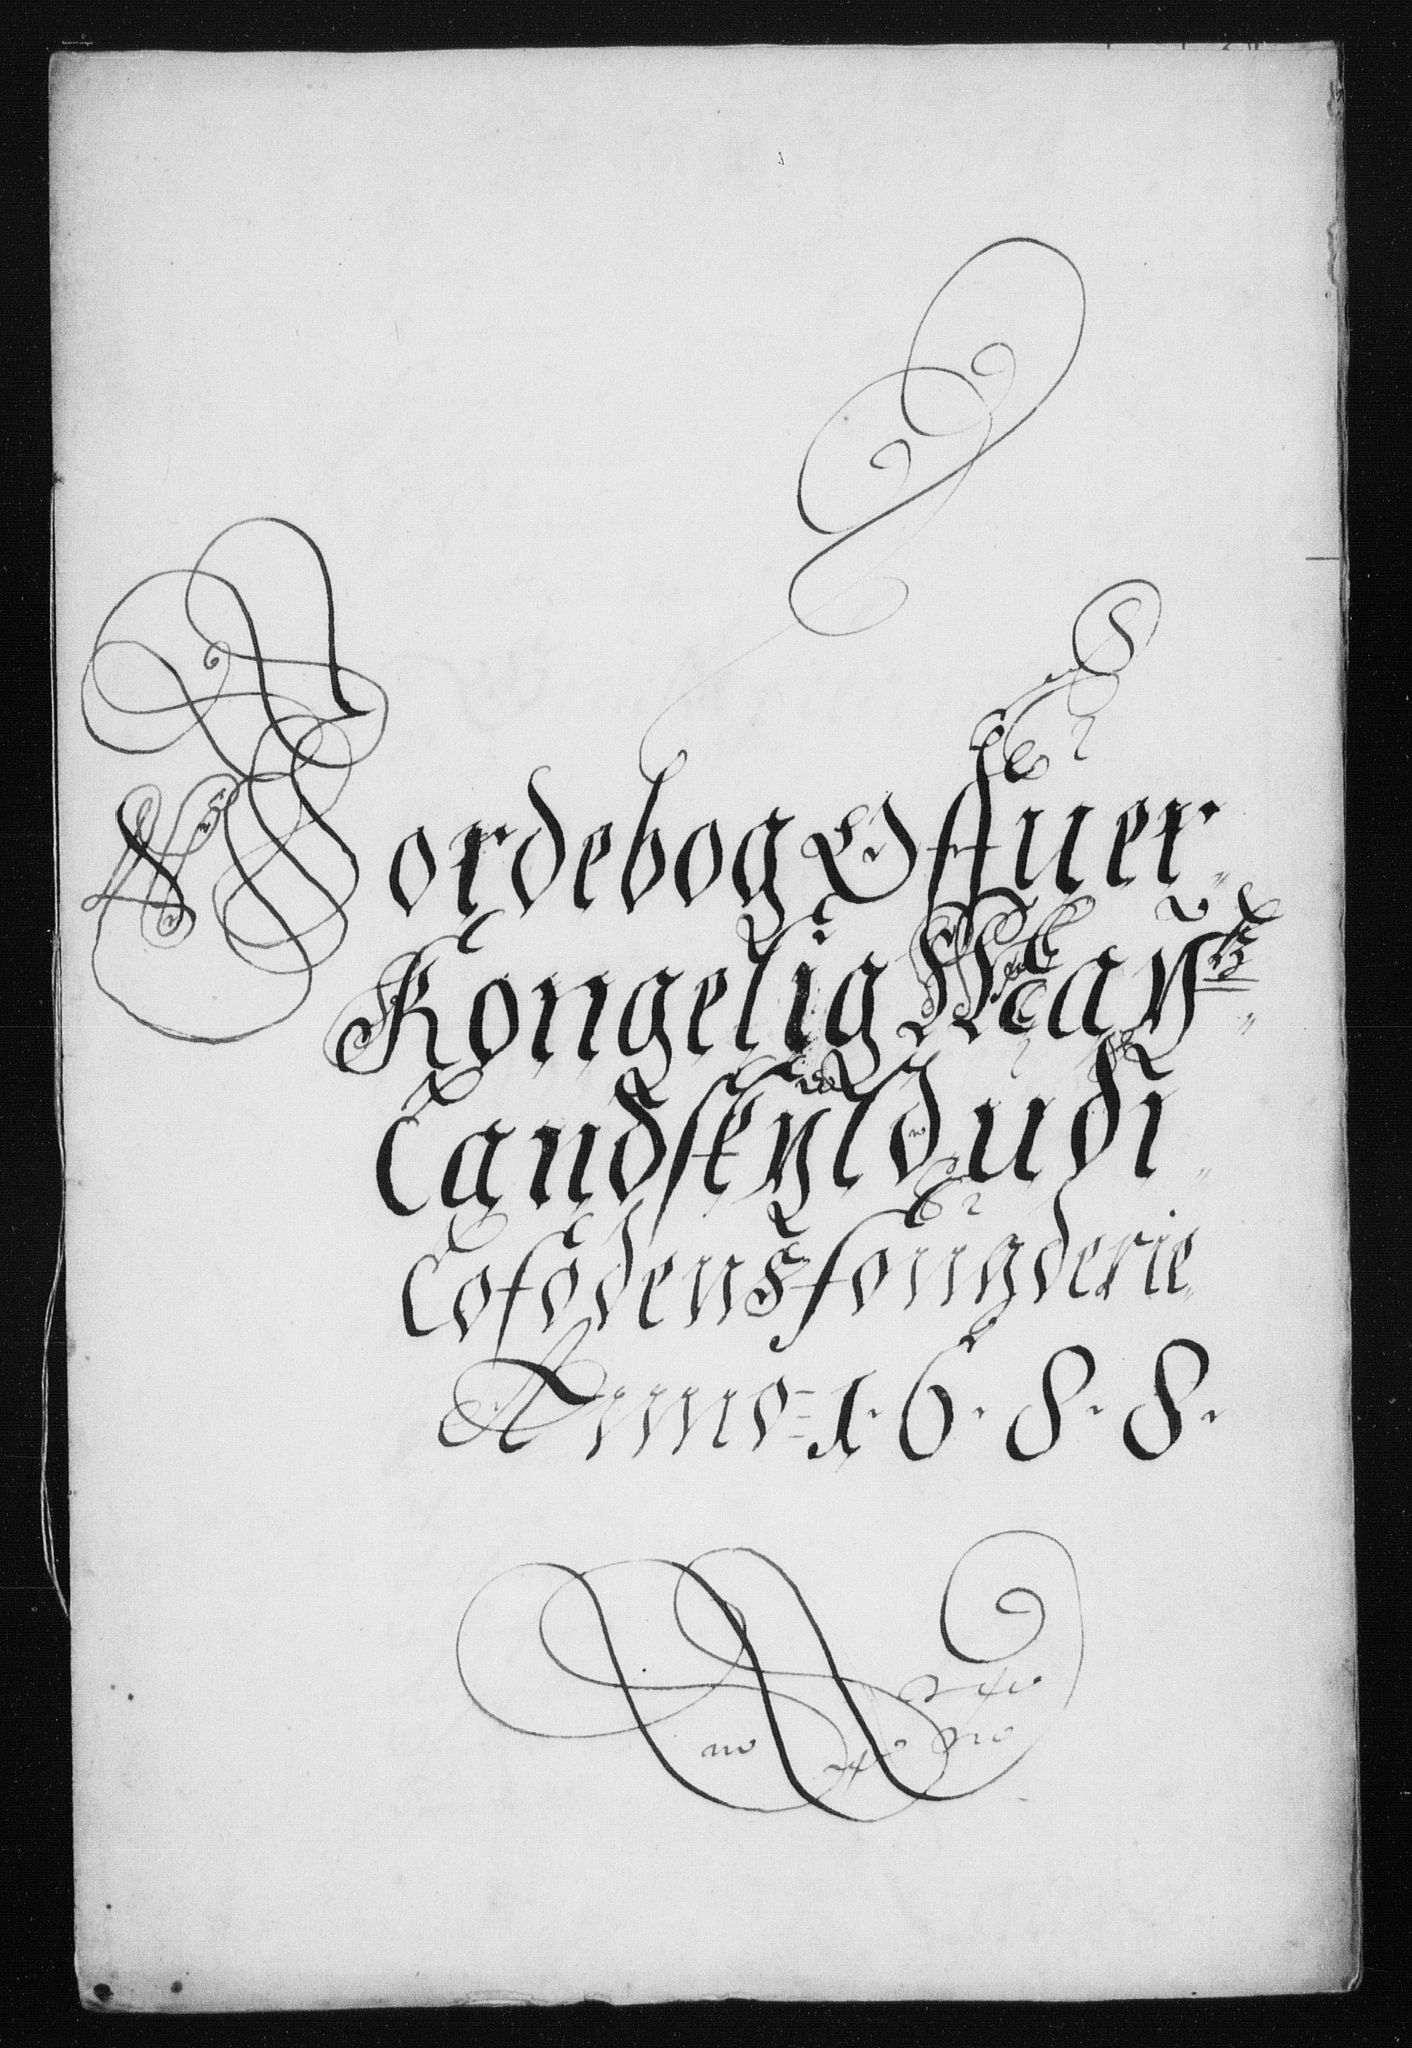 Jordebog Offuer
Kongelig Maÿtz
Landskyld udi
Lofodens fougderie
Anno 1688.